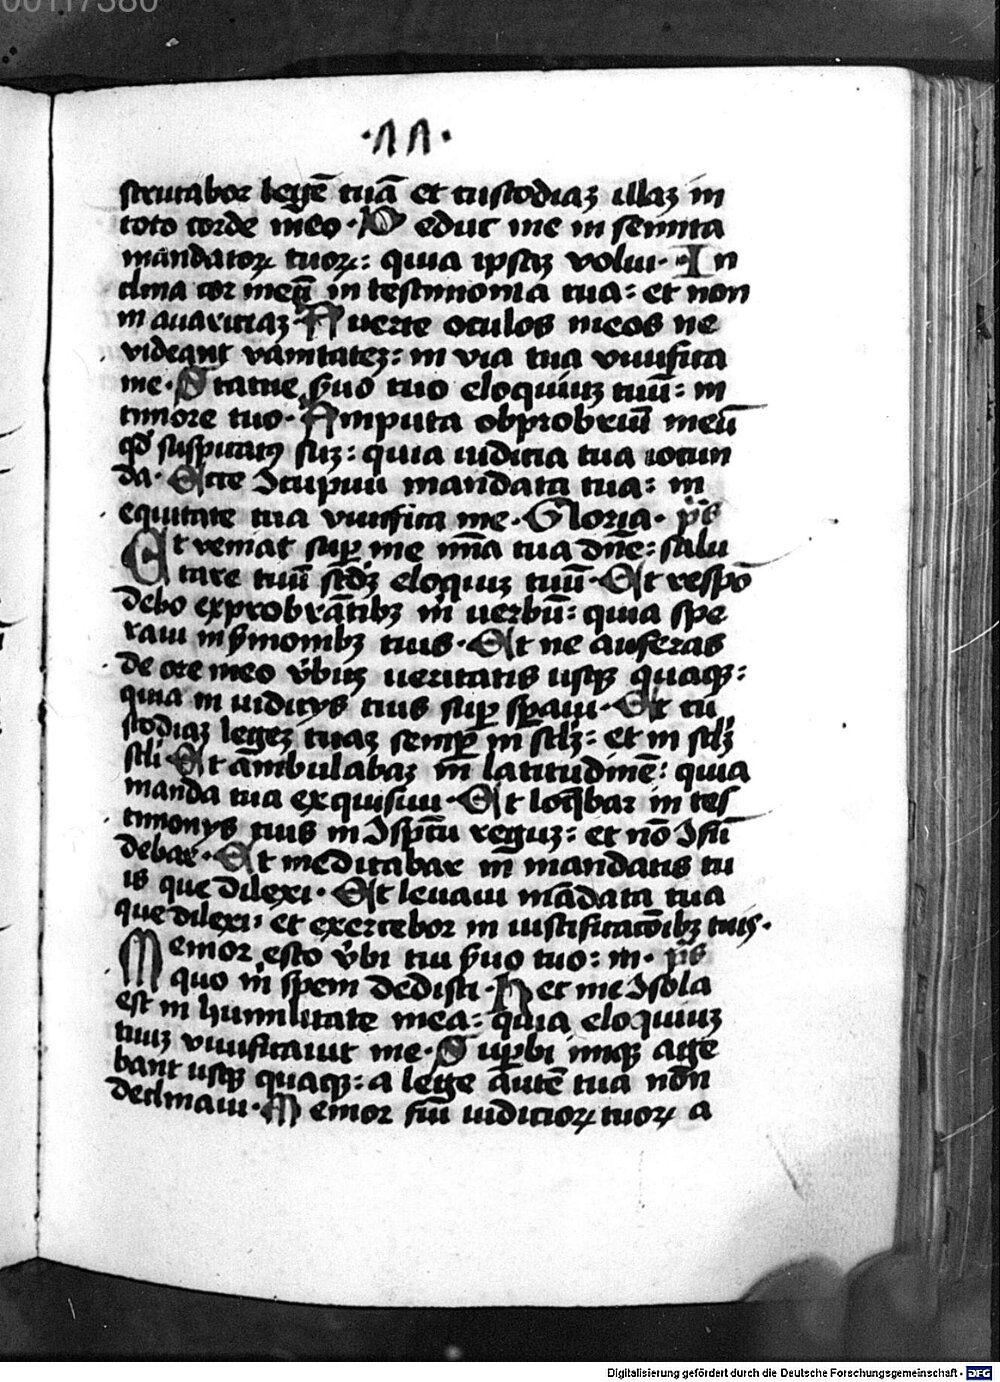 00117380
·𐌠𐌠·
scrutabor legē tuā et custodiaꝫ illaꝫ in
toto corde meo · Deduc me in semita
mandatoꝝ tuoꝝ : quia ipsaꝫ volui · In
clina cor meū in testimonia tua : et non
in auaritiaꝫ · Auerte oculos meos ne
videant vanitateꝫ : in via tua viuifica
me · Statue s̄uo tuo eloquiuꝫ tuū : in
timore tuo · Amputa obprobriū meū
qd̄ suspicatꝰ suꝫ : quia iudicia tua iocun
da · Ecce ɔcupiui mandata tua : in
equitate tua viuifica me · Gloria · p̄s
Et veniat sup̄ me mīa tua dn̄e : salu
tare tuū scd̄ꝫ eloquiuꝫ tuū · Et respō
debo exprobrātibꝫ m̄ uerbū : quia spe
raui in s̄monibꝫ tuis · Et ne auferas
de ore meo v̄buꝫ ueritatis usqꝫ quaqꝫ :
quia in iudicijs tuis sup̄ sp̄aui · Et cu
stodiaꝫ legeꝫ tuaꝫ semp̄ in sclꝫ : et in sclꝫ
scli · Et ambulabaꝫ in latitudinē : quia
manda tua exquisiui · Et loq̄bar in tes
timonijs tuis in ɔspc̄tu reguꝫ : et nō ɔfū
debar · Et meditabar in mandatis tu
is que dilexi · Et leuaui mādata tua
que dilexi : et exercebor in iustificatōibꝫ tuis ·
Memor esto v̄bi tui s̄uo tuo : in · p̄s
quo m̄ spem dedisti · Hec me ɔsola
est in humilitate mea : quia eloquiuꝫ
tuuꝫ viuificauit me · Sup̄bi iniqꝫ age
bant usqꝫ quaqꝫ : a lege autē tua non
declinaui · Memor fui iudicioꝝ tuoꝝ a
Digitalisierung gefördert durch die Deutsche Forschungsgemeinschaft - DFG